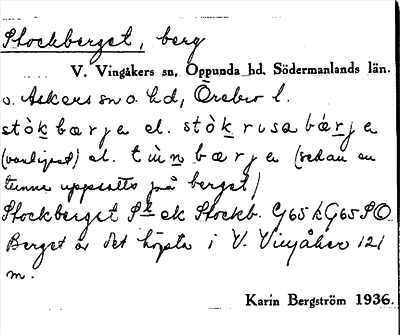 Stockberget, berg
V. Vingåkers sn, Oppunda hd, Södermanlands län.
o. Askers sn o. hd, Örebro l.
stòkbærjə el. stòkrusabǽrjə
(vanligast) el. tùnbærjə (sedan en
tunna uppsatts på berget)
Stockberget Sk ek Stockb. G65 k G65 SO
Berget är det högsta i V. Vingåker 121
m.
Karin Bergström 1936.